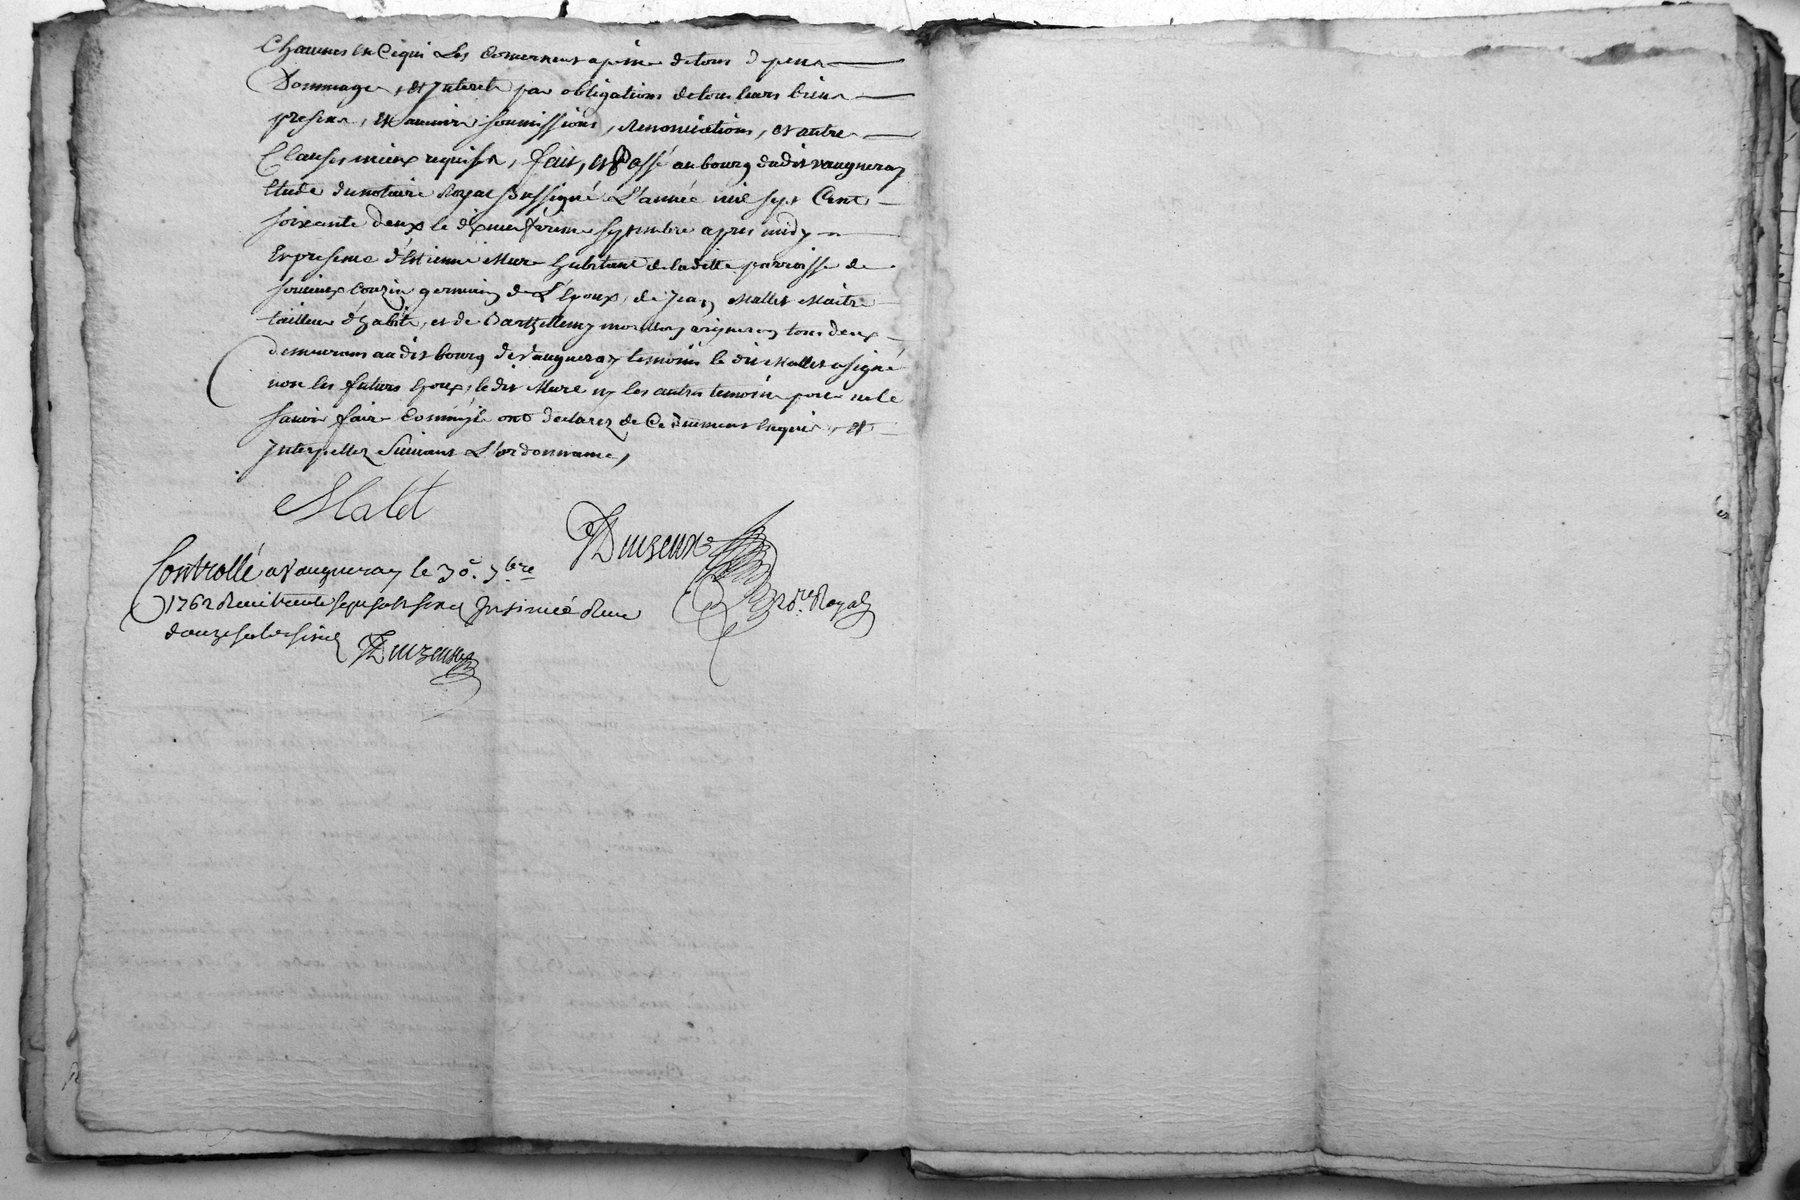 Chacunes en ce qui les Concernent a peine de tous depens
Dommages, et Interets par obligations de tous leurs biens
presens, et avenir soumissions, renonciations, et autres
Clauses mieux requises, fait, et passé au bourg dudit vaugneray
Etude du notaire Royal Soussigné L'année mil sept Cent
soixante deux le dixneufvieme septembre apres midy
En presence d'Estienne Mure habitant de laditte parroisse de
souzieux Couzin germain de L'Epoux, de Jean Mallet Maitre
tailleur d'habits, et de Barthellemy vigneron tous deux
demeurans au dit bourg de Vaugneray temoins le dit Mallet a signé
non les futurs Epoux, le dit Mure ny les autres temoins pour ne le
savoir faire Comm'jls ont declarez de Ce duement Enquis, et
Interpellez Suivant L'ordonnance,
Malet
Controllé a Vaugneray le 30e. 7bre
1762 Reçu trente sept sols six d Insinué Reçu
douze sols six d
Nore. Royal